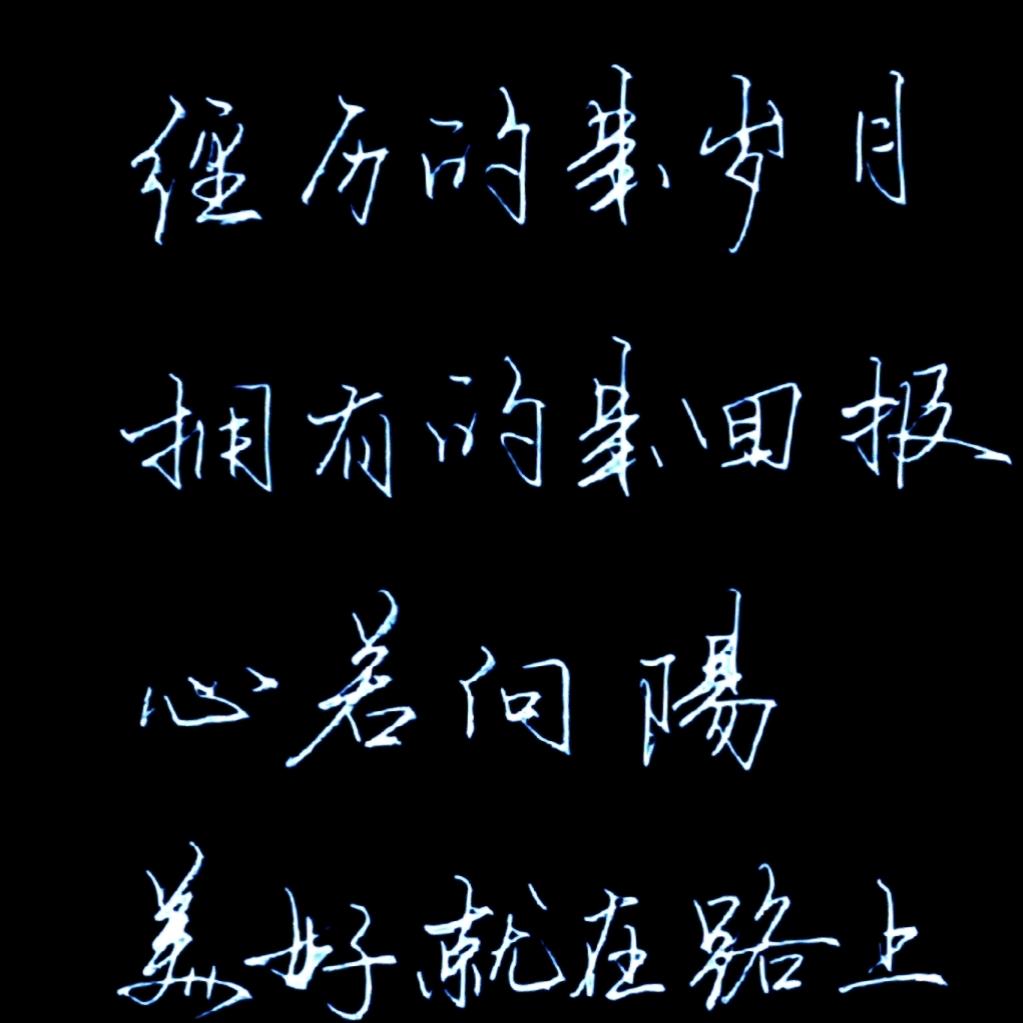 经历的是岁月
拥有的是回报
心若向陽
美好就在路上